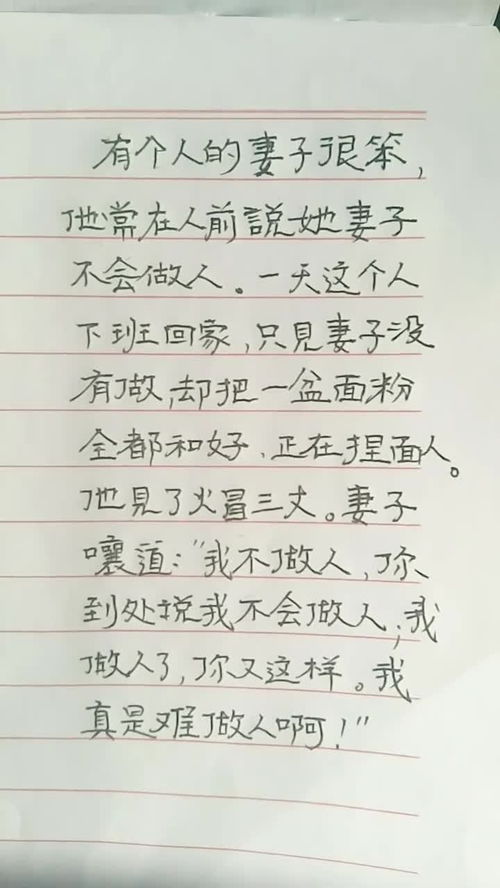 有个人的妻子很笨,
他常在人前説她妻子
不会做人。一天这个人
下班回家,只見妻子没
有做,却把一盆面粉
全都和好、正在捏面人。
他見了火冒三丈。妻子
嚷道:"我不做人,你
到处説我不会做人;我
做人了,你又这样。我
真是难做人啊!"